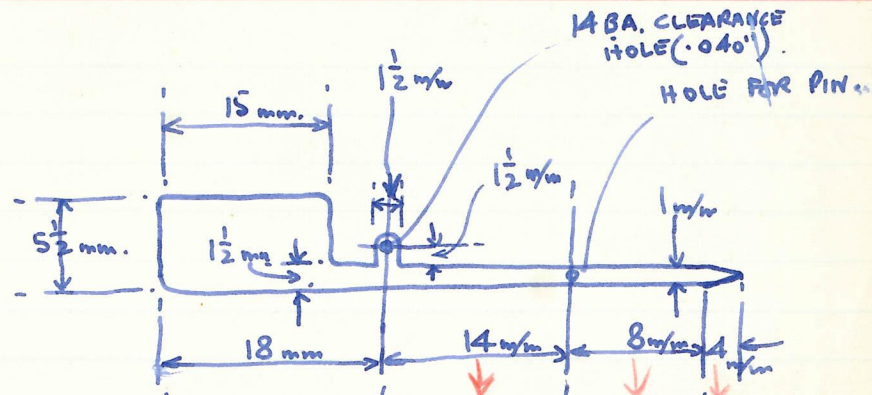 14 BA. CLEARANCE
HOLE (.040").
1 1/2 m/m
HOLE FOR PIN.
15 mm.
1 1/2 m/m
1 m/m
5 1/2 mm.
1 1/2 mm
18 mm
14 m/m
8 m/m
4
m/m